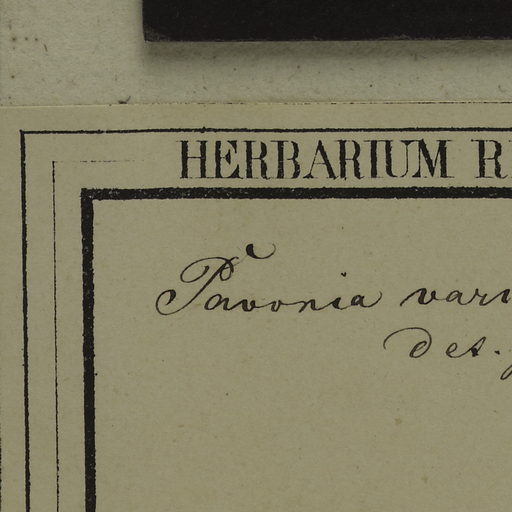 HERBARIUM R
Pavonia vari
det.